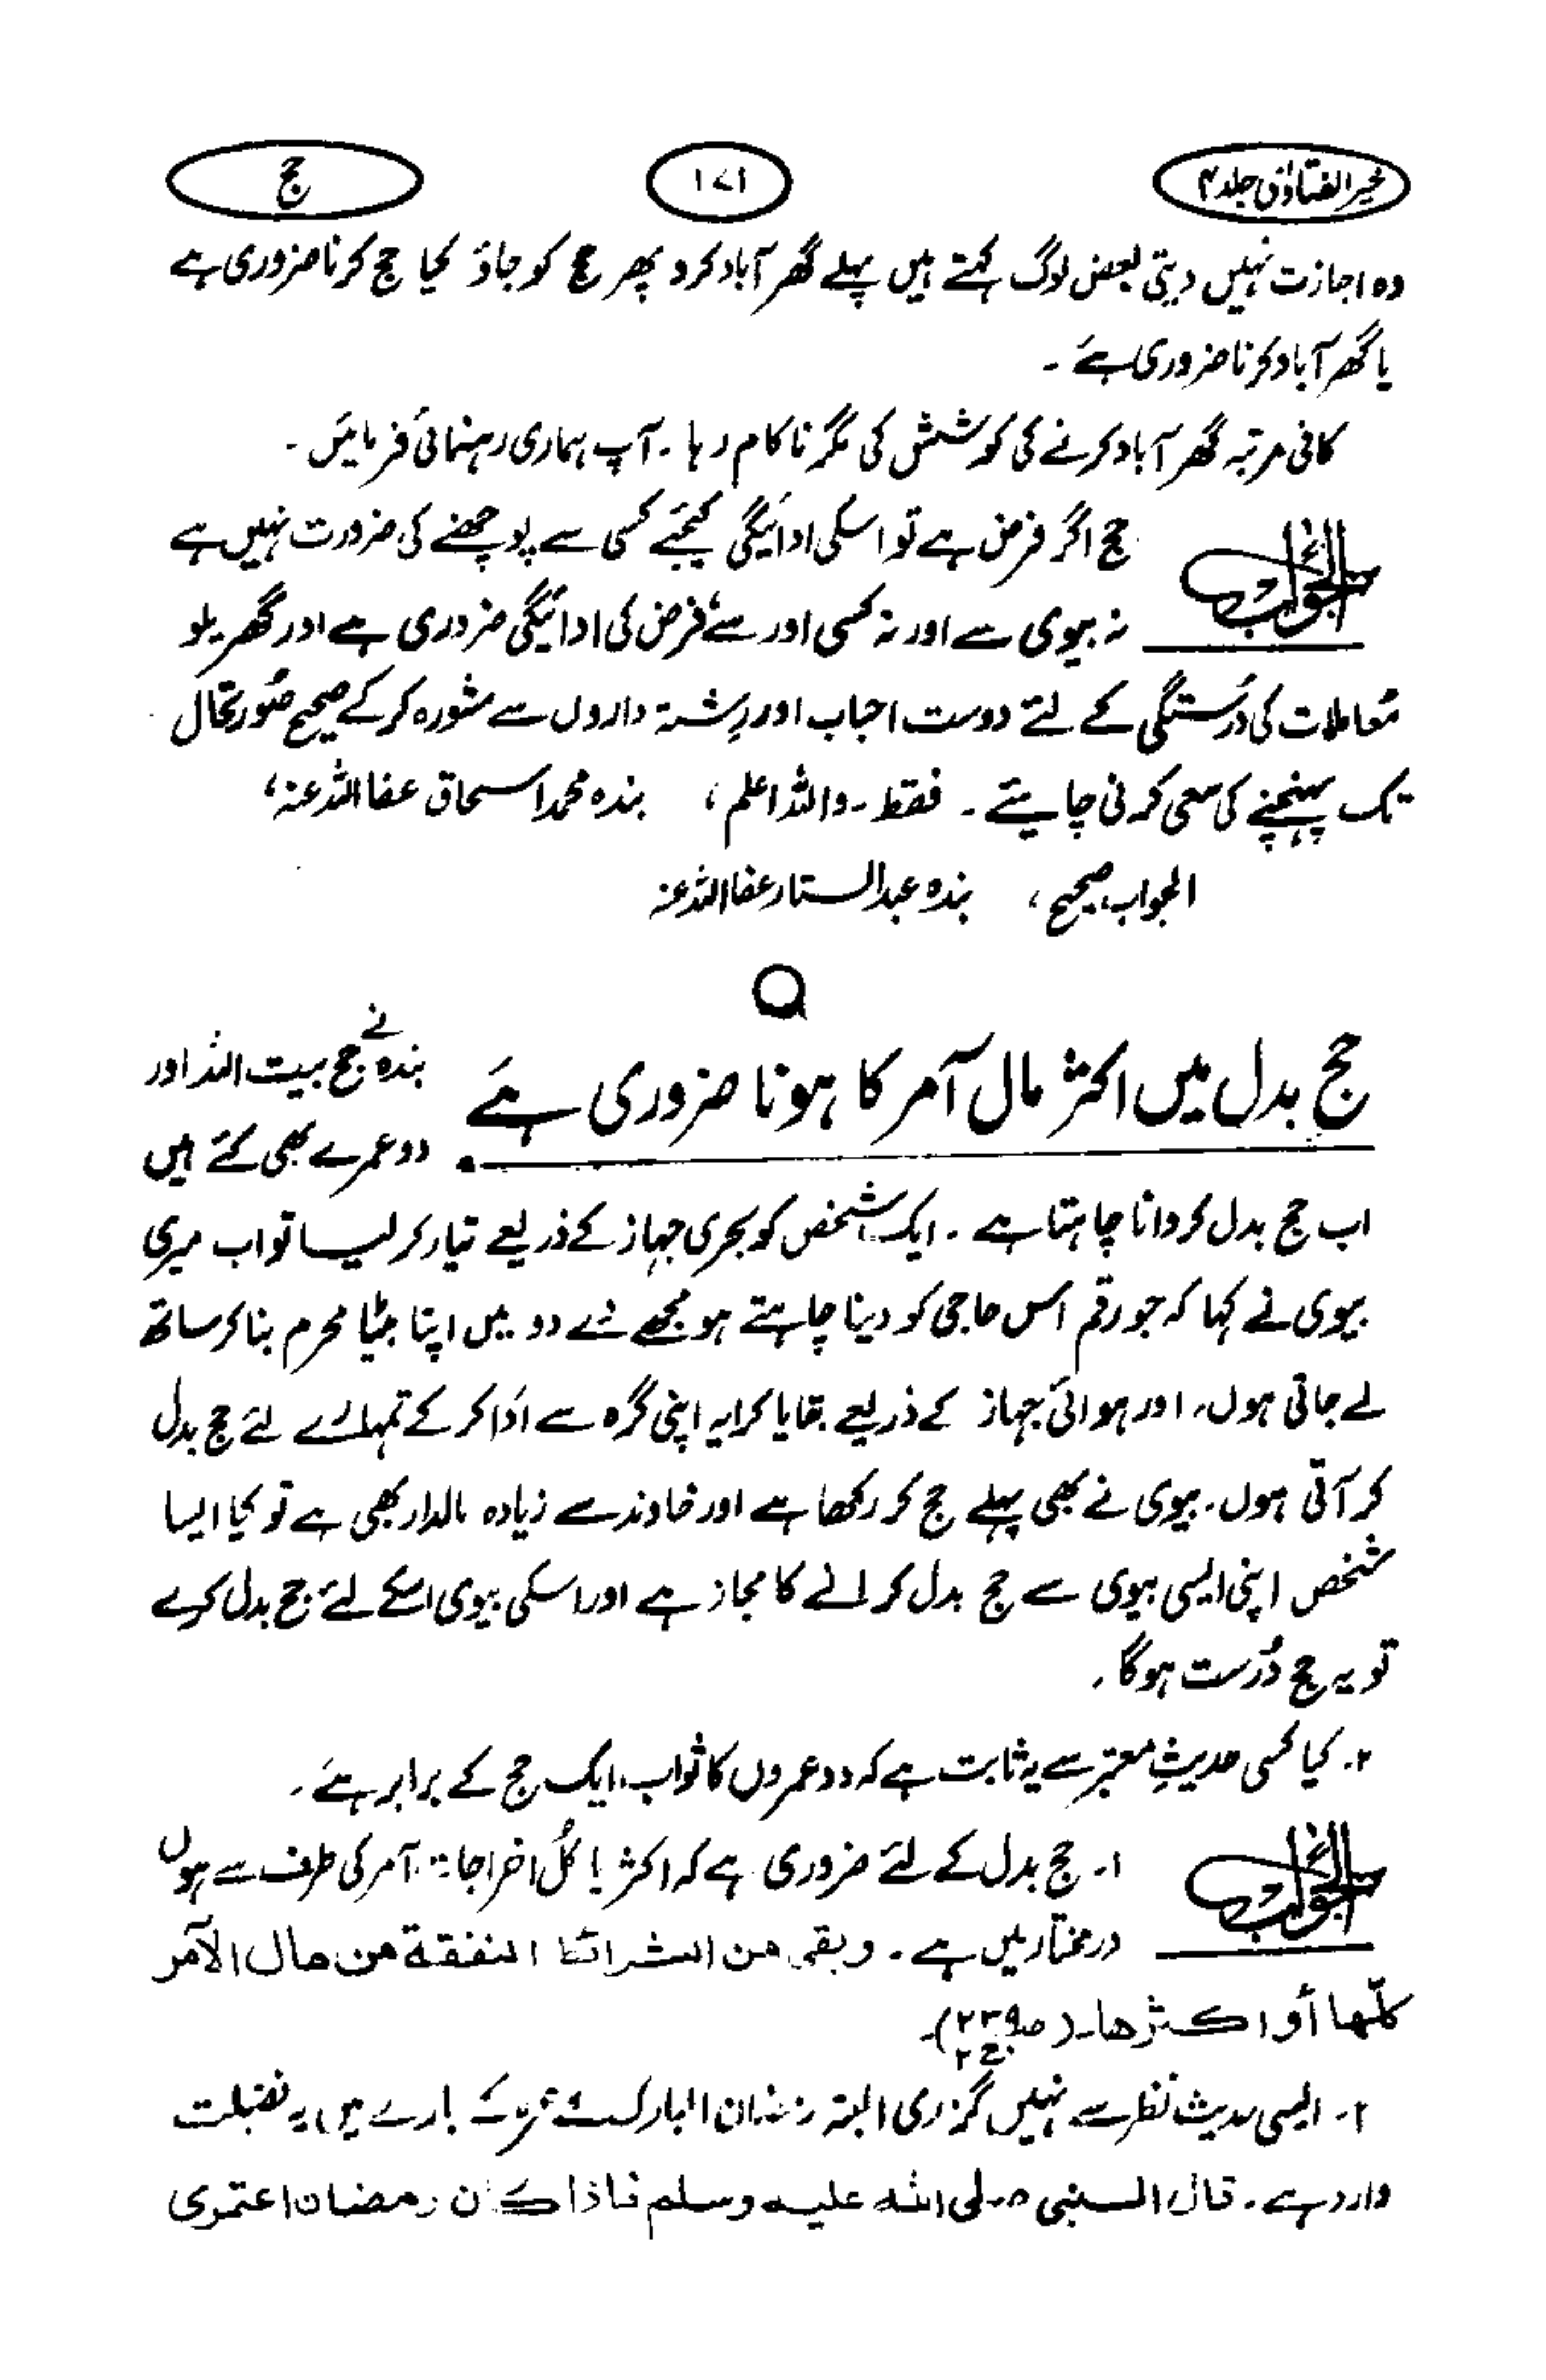 خیر الفتاویٰ جلد ۴
۱۷۱
حج
وہ اجازت نہیں دیتی بعض لوگ کہتے ہیں پہلے گھر آباد کرو پھر حج کو جاؤ کیا حج کرنا ضروری ہے
یا گھر آباد کرنا ضروری ہے ۔
کافی مرتبہ گھر آباد کرنے کی کوشش کی مگر ناکام رہا ۔ آپ ہماری رہنمائی فرمائیں ۔
الجواب
حج اگر فرض ہے تو اسکی ادائیگی کیجئے کسی سے پوچھنے کی ضرورت نہیں ہے
نہ بیوی سے اور نہ کسی اور سے، فرض کی ادائیگی ضروری ہے اور گھریلو
معاملات کی درستگی کے لئے دوست احباب اور رشتہ داروں سے مشورہ کر کے صحیح صورتحال
تک پہنچنے کی سعی کرنی چاہیئے ۔ فقط ۔ واللہ اعلم ، بندہ محمد اسحاق عفا اللہ عنہ ،
الجواب صحیح ، بندہ عبدالستار عفا اللہ عنہ
حج بدل میں اکثر مال آمر کا ہونا ضروری ہے
بندہ نے حج بیت اللہ اور
دو عمرے بھی کئے ہیں
اب حج بدل کروانا چاہتا ہے ۔ ایک شخص کو بحری جہاز کے ذریعے تیار کر لیا تو اب میری
بیوی نے کہا کہ جو رقم اس حاجی کو دینا چاہتے ہو مجھے دے دو میں اپنا بیٹا محرم بنا کر ساتھ
لے جاتی ہوں، اور ہوائی جہاز کے ذریعے بقایا کرایہ اپنی گرہ سے ادا کر کے تمہارے لئے حج بدل
کر آتی ہوں ۔ بیوی نے بھی پہلے حج کر رکھا ہے اور خاوند سے زیادہ مالدار بھی ہے تو کیا ایسا
شخص اپنی ایسی بیوی سے حج بدل کرانے کا مجاز ہے اور اسکی بیوی اسکے لئے حج بدل کرے
تو یہ حج درست ہوگا ۔
۲۔ کیا کسی حدیثِ معتبر سے یہ ثابت ہے کہ دو عمروں کا ثواب ایک حج کے برابر ہے ۔
الجواب
۱۔ حج بدل کے لئے ضروری ہے کہ اکثر یا کُل اخراجات آمر کی طرف سے ہوں
درمختار میں ہے ۔ وبقی من الشرائط النفقة من مال الآمر
كلّها أو اكثرها ۔ (ص۲۳۹ ج۲)۔
۲۔ ایسی حدیث نظر سے نہیں گزری البتہ رمضان المبارک کے عمرہ کے بارے میں یہ فضیلت
وارد ہے ۔ قال النبى صلى الله عليه وسلم فاذا كان رمضان اعتمرى